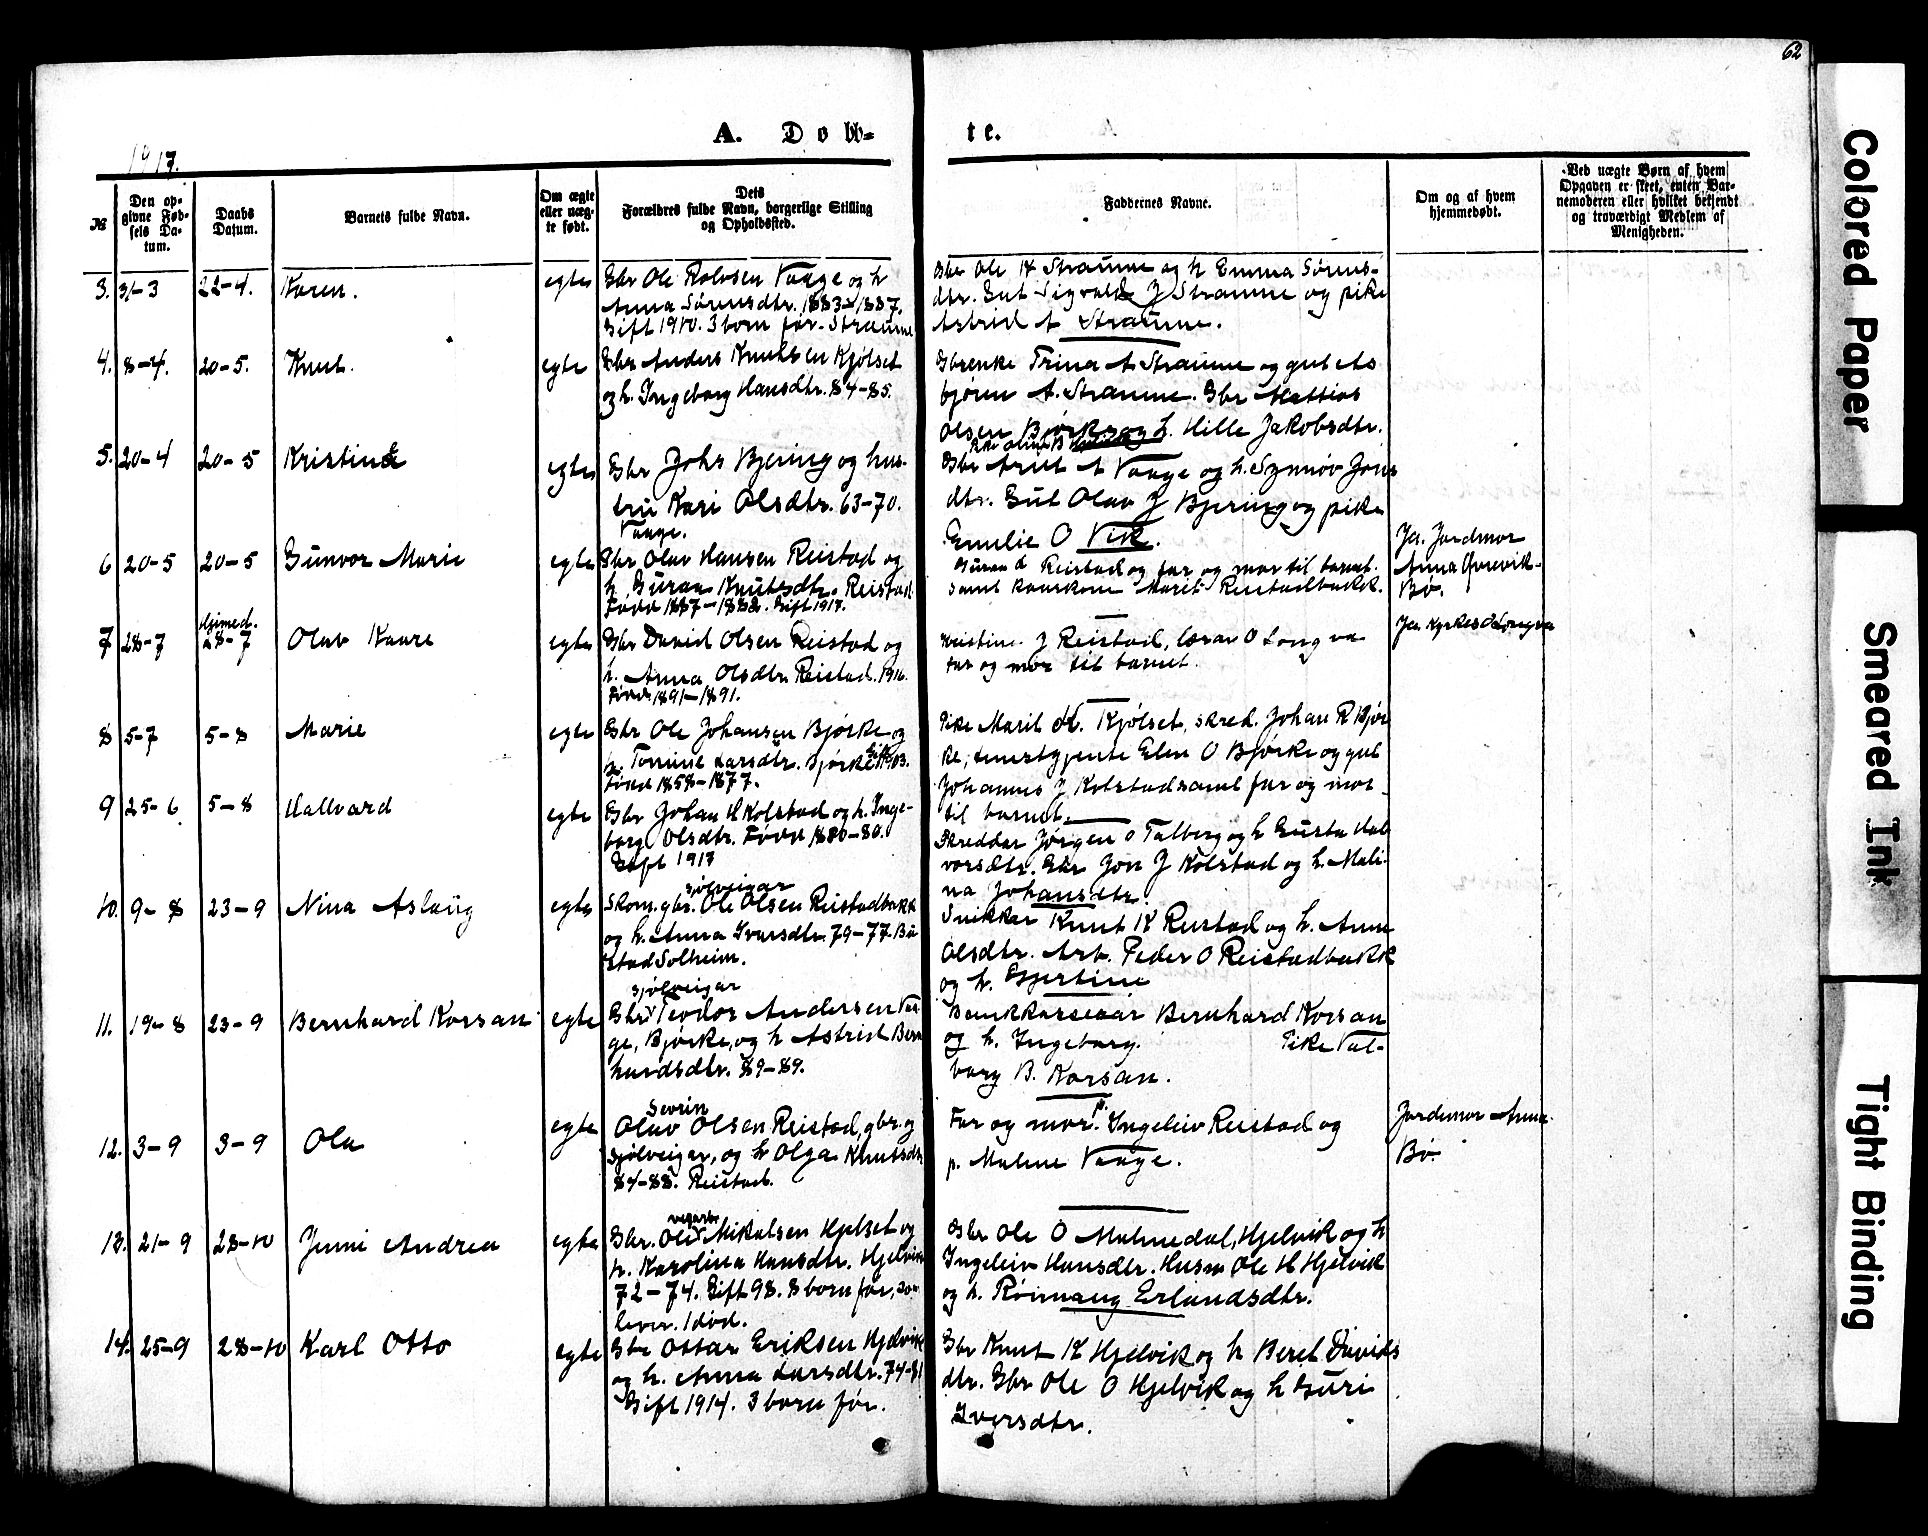 62
A. Dob-
te.
1917.
№
Den op-
givne Fød-
sels Da-
tum.
Daabs
Datum.
Barnets fulde Navn.
Om ægte
eller uæg-
te født.
Dets
Forældres fulde Navn, borgerlige Stilling
og Opholdssted.
Faddernes Navne.
Om og af hvem
hjemmedøbt.
Ved uægte Børn af hvem
Opgaven er skeet, enten Bar-
nemoderen eller hvilket bekjendt
og troværdigt Medlem af
Menigheden.
3. 31-3 22-4. Karen. egte
Gbr Ole Rolvsen Vaage og h
Anna Sørensdtr. 1883-1887.
Gift 1910. 3 born før. Straume
Gbr Ole K Straume og h Emma Sørens-
dtr. Gut Sigvald J Straume og pike
Astrid A Straume.
4. 8-4. 20-5. Knut. egte
Gbr Anders Knutsen Kjølset
og h. Ingeborg Hansdtr. 84-85.
Gbrenke Trina A Straume og gut As
bjørn A. Straume. Gbr Mattias
Olsen Bjørke og h. Hille Jakobsdtr.
5. 20-4 20-5 Kristine egte
Gbr Johs Bjering og hus-
tru Kari Olsdtr. 63-70.
Vaage.
Gbr Arnt A Vaage og h. Synnøv Jons
dtr. Gut Olav J Bjering og pike
Emilie O Vik.
6 20-5 20-5 Gunvor Marie egte
Gbr Olav Hansen Reistad og
h. Guran Knutsdtr. Reistad.
Fødd 1887-1882. Gift 1917.
Guran d Reistad og far og mor til barnet.
samt kaarkone Marit Reistadbakk.
Ja. Jordmor
Anna Øvrevik-
Bø.
7 28-7 hjimed. 28-7 Olav Kaare egte
Gbr David Olsen Reistad og
h. Anna Olsdtr Reistad. 1916.
Fødd 1891-1891.
Kristine J Reistad, lærar O Longva
far og mor til barnet.
Ja Kyrkes O Longva
8 5-7 5-8 Marie egte
Gbr Ole Johansen Bjørke og
h. Tomine Larsdtr. Bjørke. Gift 1903.
Fødd 1858-1877.
Pike Marit H. Kjølset, skred. Johan R Bjør
ke, tenestgjente Elen O Bjørke og gut
Johannes J Kolstad samt far og mor
til barnet.
9 25-6 5-8 Hallvard egte
Gbr Johan H Kolstad og h. Inge-
borg Olsdtr. Fødd 1880-80.
Gift 1913
Skreddar Jørgen O Talberg og h Gusta Hal
vorsdtr. Gbr Jon J Kolstad og h. Mali-
na Johansdtr.
10. 9-8 23-9 Nina Aslaug egte
sjølveigar
Skom. gbr. Ole Olsen Reistadbakk
og h. Anna Ivarsdtr. 79-77. Bu
stad Solheim.
Snikkar Knut K Reistad og h. Anne
Olsdtr. Arb. Peder O Reistadbakk
og h. Gjertine
11. 19-8 23-9 Bernhard Korsan egte
sjølveigar
Gbr Teodor Andersen Vaa
ge, Bjørke, og h Astrid Bern
hardsdtr. 89-89.
Bankkasserar Bernhard Korsan
og h. Ingeborg. Pike Val-
borg B. Korsan.
12. 3-9 3-9 Ola egte
Sevrin
Olav Olsen Reistad, gbr. og
sjølveigar, og h Olga Knutsdtr
84-88. Reistad.
Far og mor. p. Ingeleiv Reistad og
p. Malene Vaage.
Jordmor Anna
Bø.
13. 21-9 28-10 Jenni Andrea egte
Gbr. Ole Mikalsen Hjelset og
h. Karolina Hansdtr. Hjelvik
72-74. Gift 98. 8 born før, so
lever. 1 død.
Gbr Ole O Malmedal, Hjelvik og h
Ingeleiv Hansdtr. Husm Ole H Hjelvik
og h. Rønnaug Erlandsdtr.
14. 25-9 28-10 Karl Otto egte
Gbr Ottar Eriksen Hjelvik
og h. Anna Larsdtr. 74-81
Gift 1914. 3 born før.
Gbr Knut K Hjelvik og h Beret Davids
dtr. Gbr Ole O Hjelvik og h Guri
Iversdtr.
Colored Paper
Smeared Ink
Tight Binding